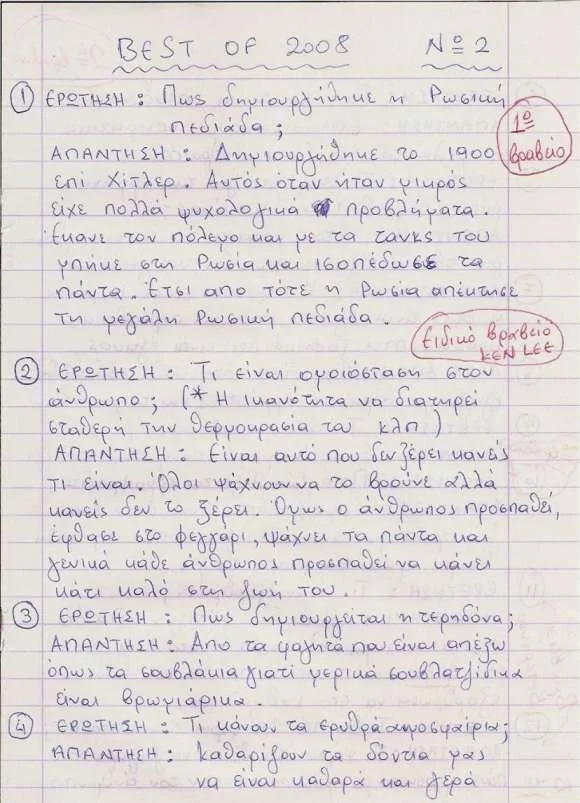 BEST OF 2008 Nº 2
1 ΕΡΩΤΗΣΗ: Πως δημιουργήθηκε η Ρωσική
πεδιάδα;
ΑΠΑΝΤΗΣΗ: Δημιουργήθηκε το 1900
επί Χίτλερ. Αυτός όταν ήταν μικρός
είχε πολλά ψυχολογικά προβλήματα.
Έκανε τον πόλεμο και με τα τανκς του
μπήκε στη Ρωσία και ισοπέδωσε τα
πάντα. Έτσι απο τότε η Ρωσία απέκτησε
τη μεγάλη Ρωσική πεδιάδα.
1º
βραβείο
Ειδικό βραβείο
KEN LEE
2 ΕΡΩΤΗΣΗ: Τι είναι ομοιόσταση στον
άνθρωπο; (* Η ικανότητα να διατηρεί
σταθερή την θερμοκρασία του κλπ)
ΑΠΑΝΤΗΣΗ: Είναι αυτό που δεν ξέρει κανείς
τι είναι. Όλοι ψάχνουν να το βρούνε αλλά
κανείς δεν το ξέρει. Όμως ο άνθρωπος προσπαθεί,
έφθασε στο φεγγάρι, ψάχνει τα πάντα και
γενικά κάθε άνθρωπος προσπαθεί να κάνει
κάτι καλό στη ζωή του.
3 ΕΡΩΤΗΣΗ: Πως δημιουργείται η τερηδόνα;
ΑΠΑΝΤΗΣΗ: Απο τα φαγητά που είναι απέξω
όπως τα σουβλάκια γιατί μερικά σουβλατζίδικα
είναι βρωμιάρικα.
4 ΕΡΩΤΗΣΗ: Τι κάνουν τα ερυθρά αιμοσφαίρια;
ΑΠΑΝΤΗΣΗ: Καθαρίζουν τα δόντια μας
να είναι καθαρά και γερά